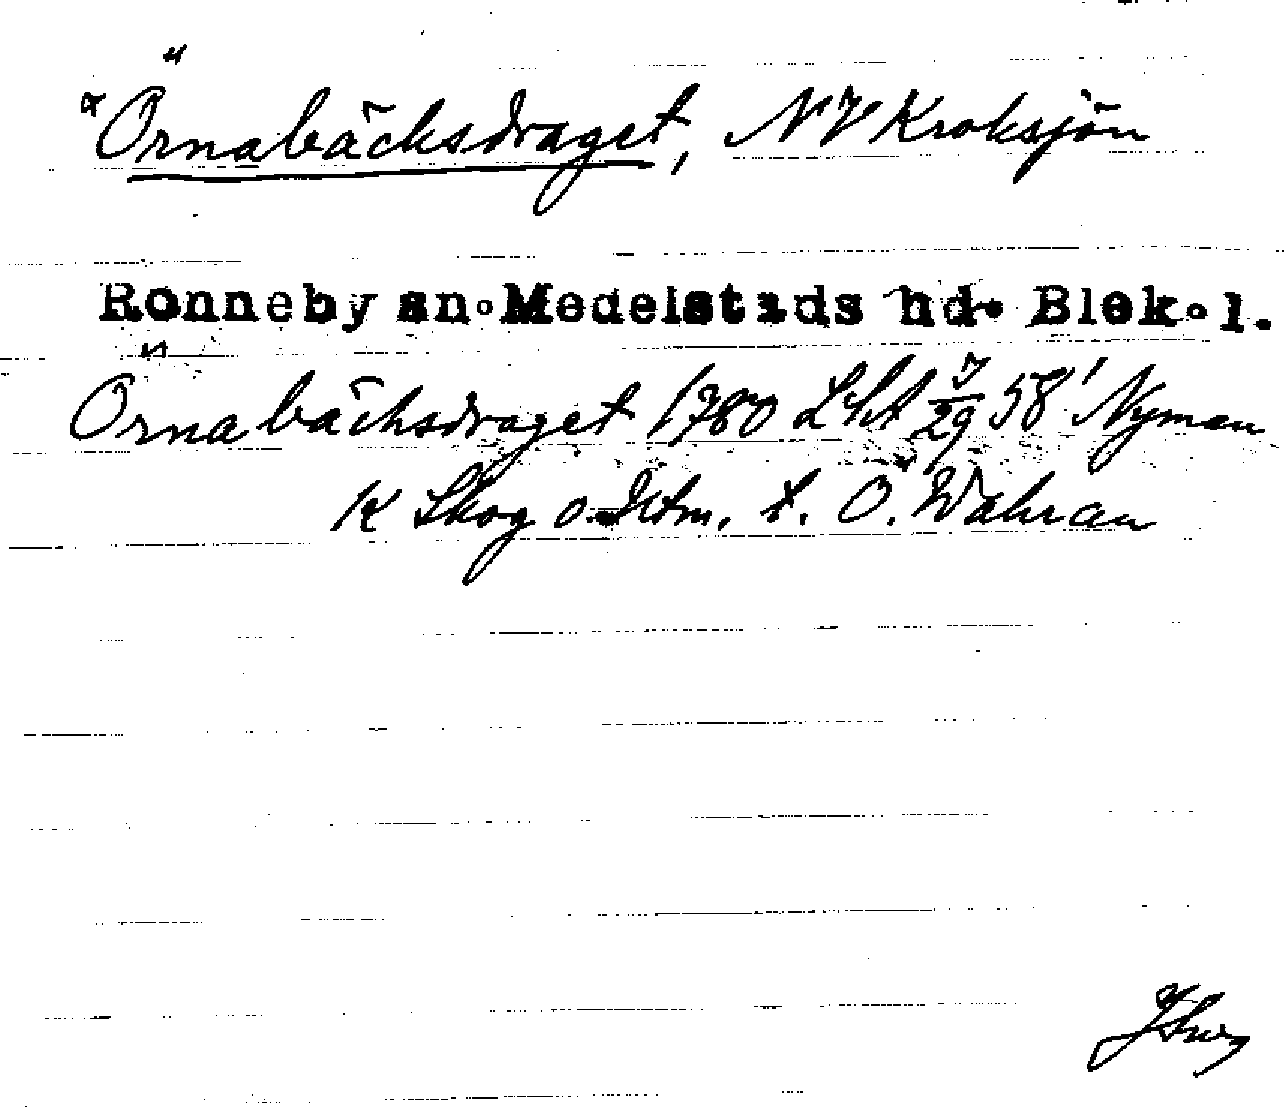 ¤ Örnabäcksdraget, NV Kroksjön
Ronneby sn. Medelstads hd. Blek. l.
Örnabäcksdraget 1780 Lht 7/29 58' Nyman
K Skog o. t. O. Wahran